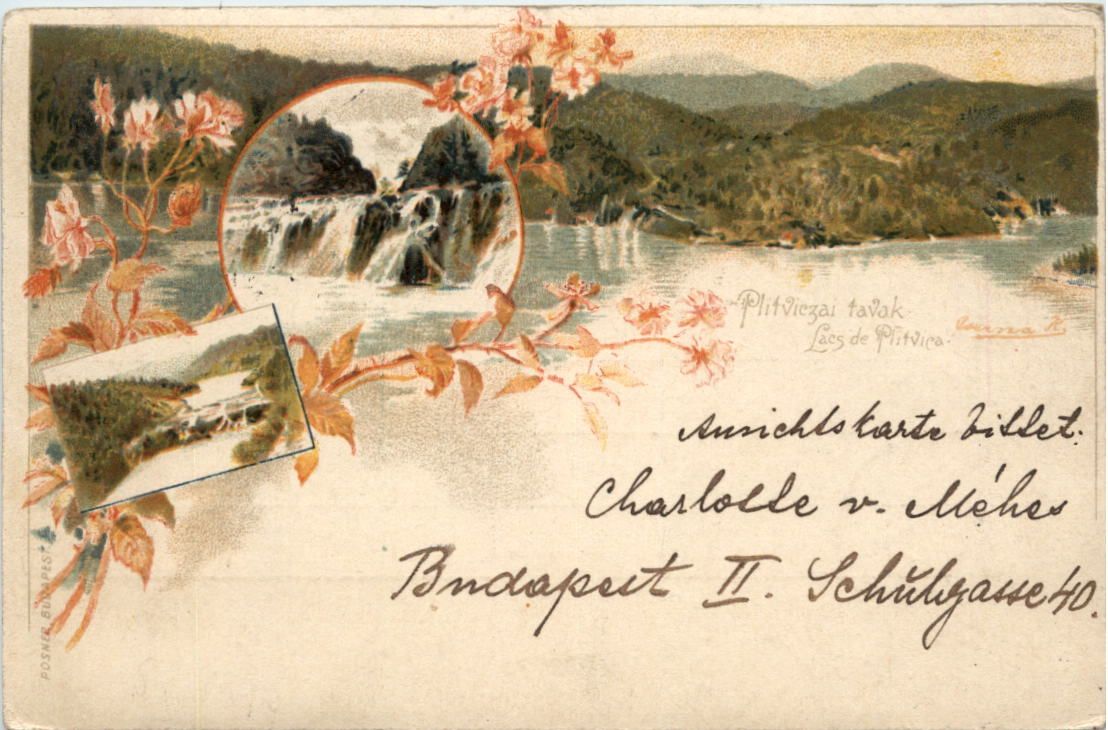 Plitviczai tavak.
Lacs de Plitvica.
Ansichtskarte bittet:
Charlotte v. Méhes
Budapest II. Schulgasse 40.
POSNER, BUDAPEST